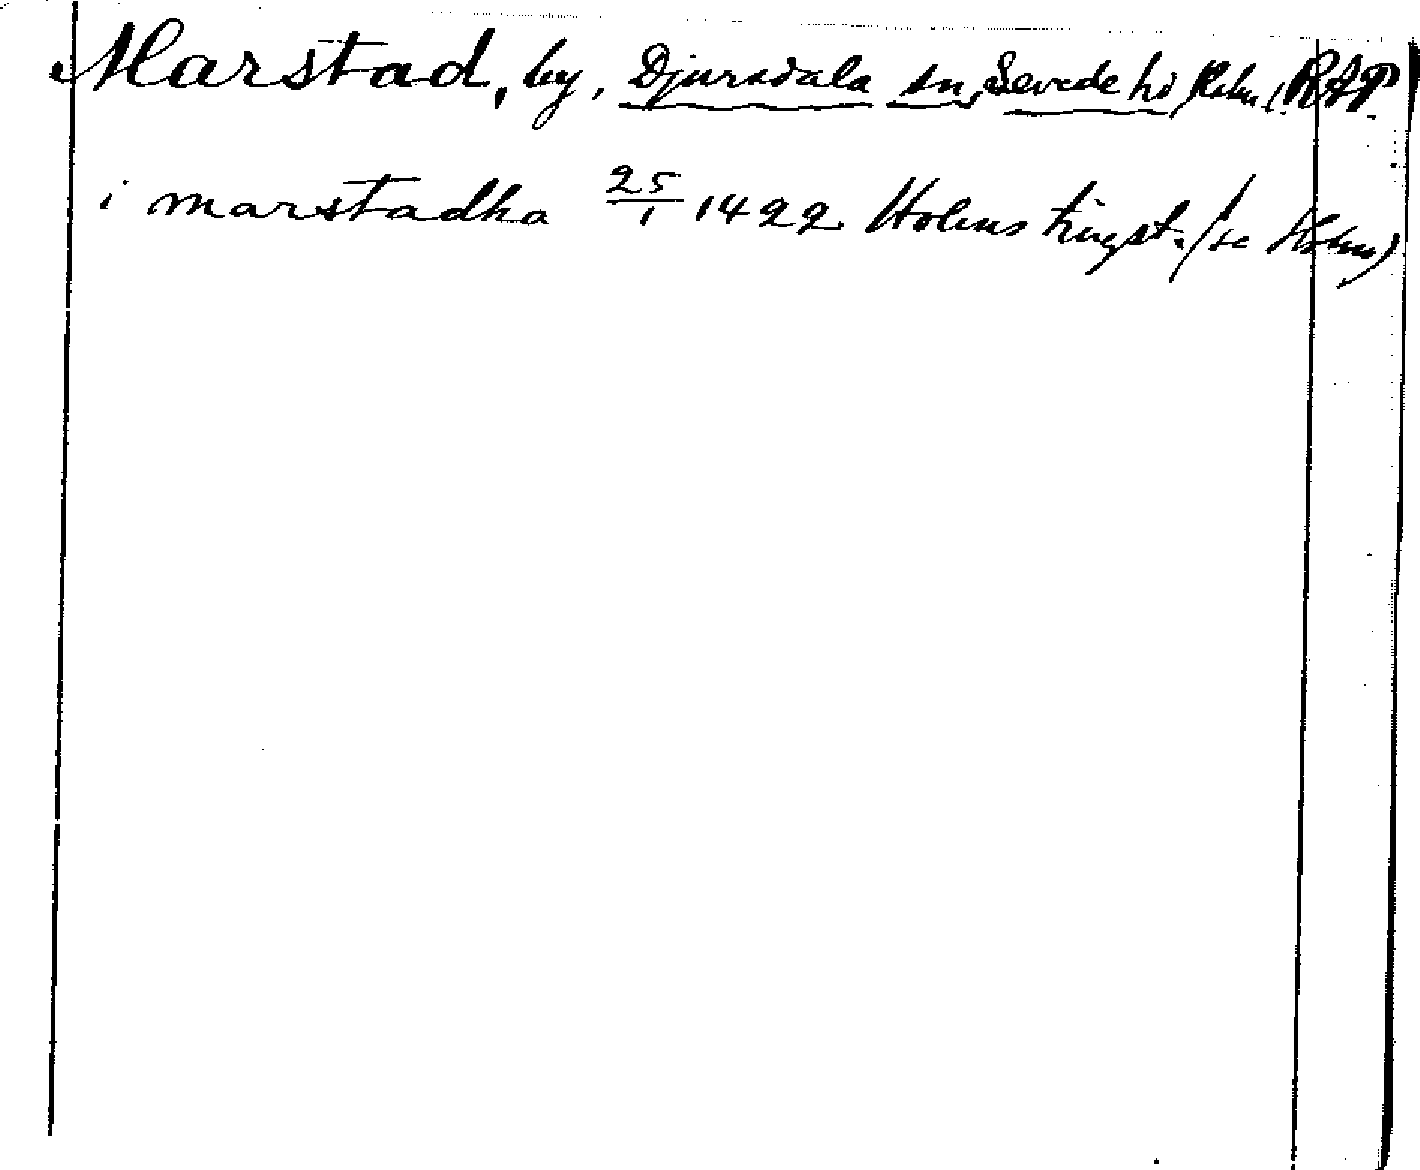 Marstad, by, Djursdala sn, Sevede hd, Kalm. l. RAP
i marstadha 25/1 1422 Holms tingst. (se Holm)